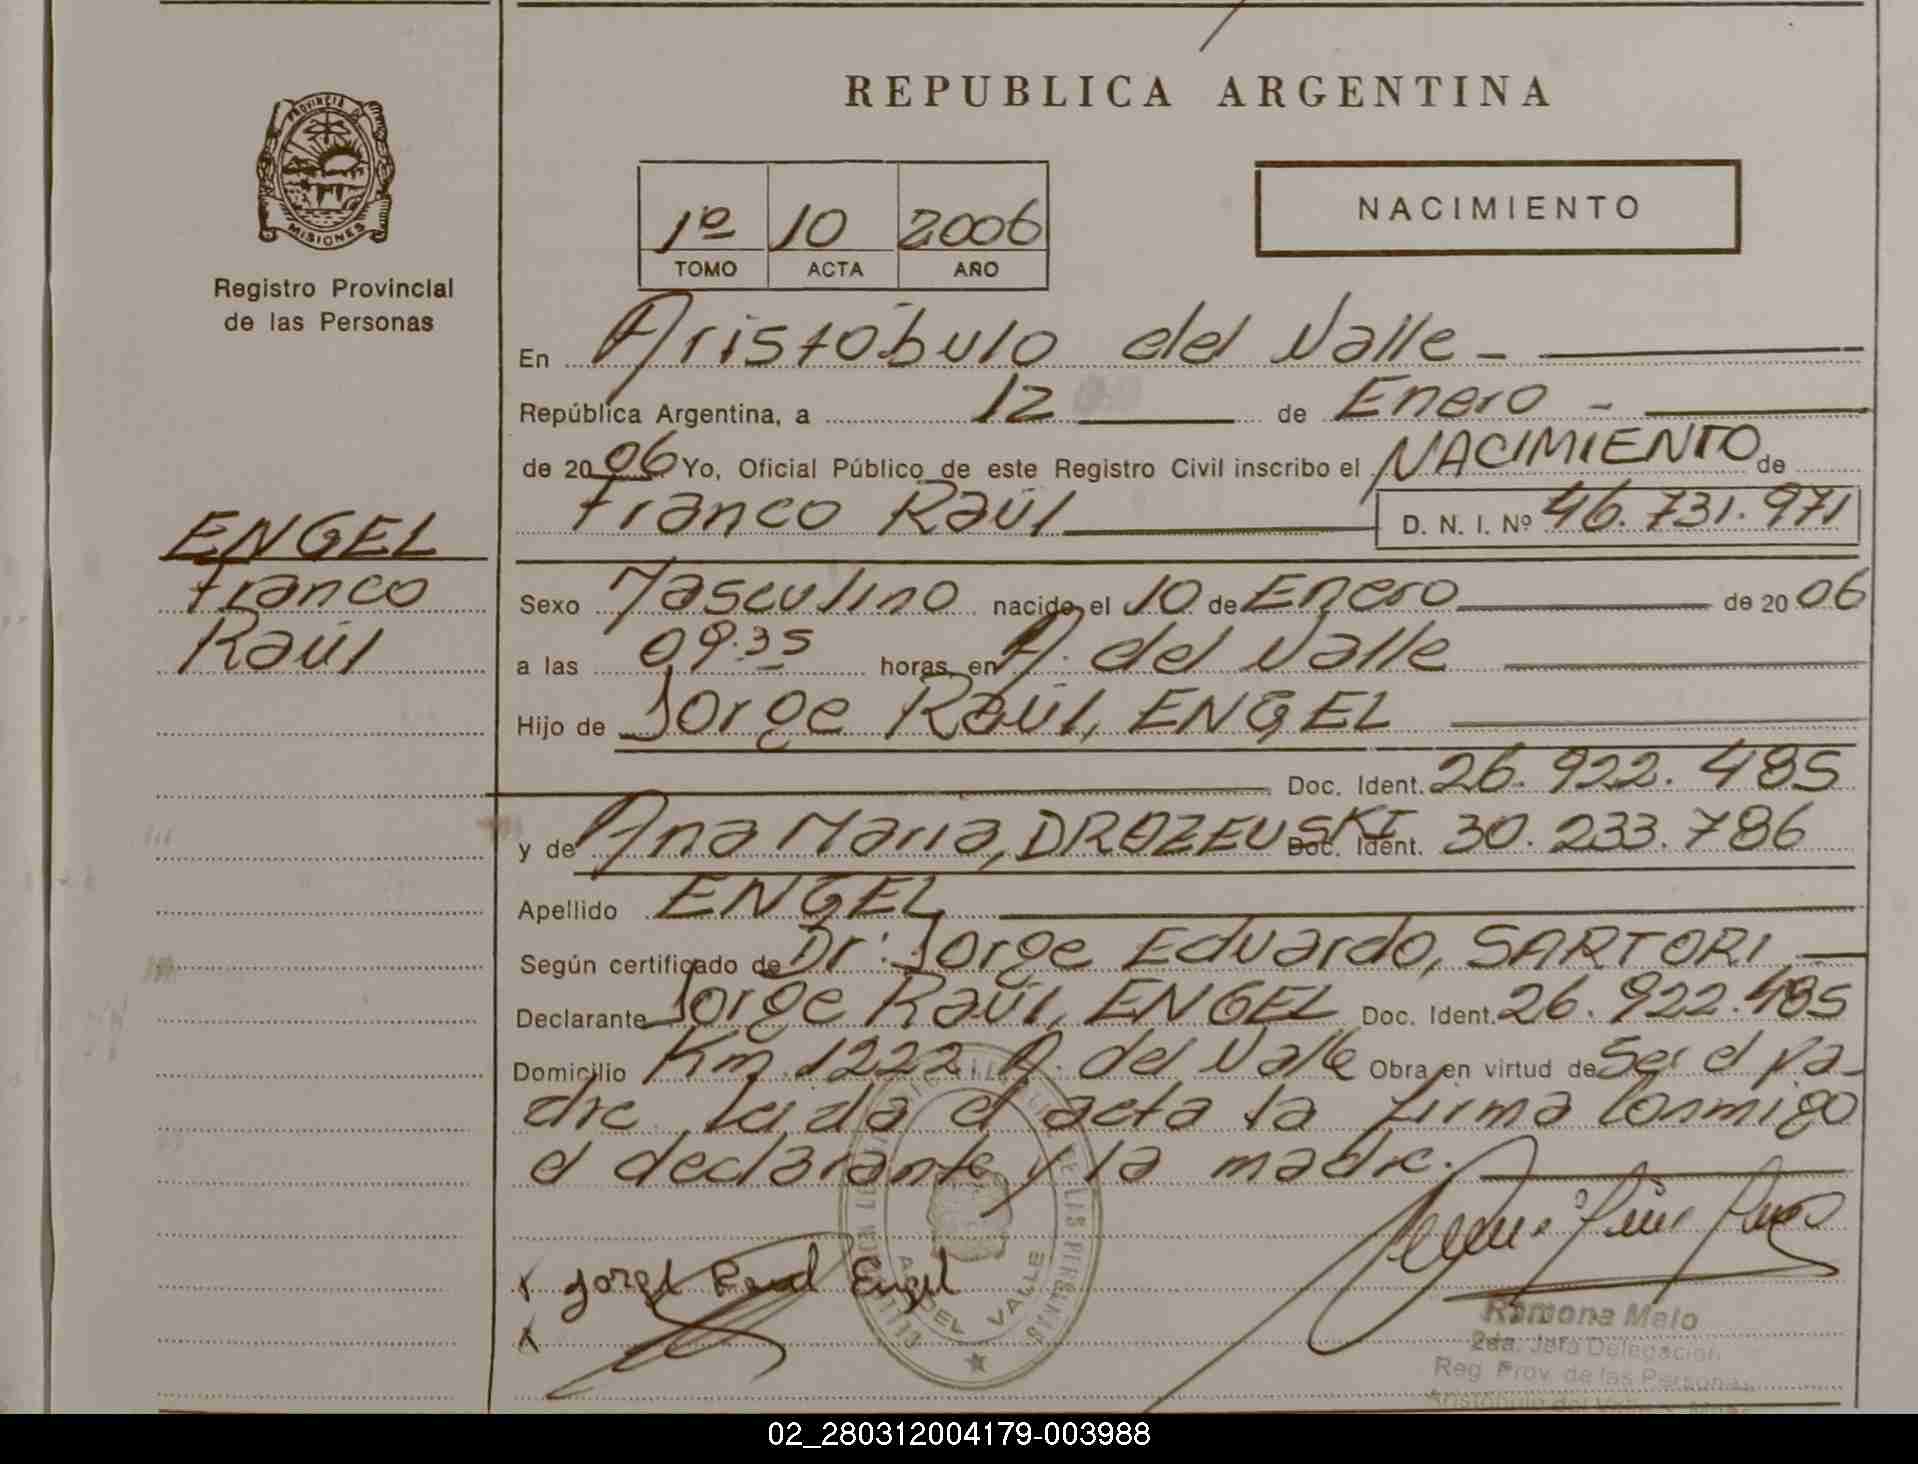 REPUBLICA ARGENTINA
PROVINCIA DE
MISIONES
Registro Provincial
de las Personas
1º 10 2006
TOMO ACTA AÑO
NACIMIENTO
En Aristóbulo del Valle -
República Argentina, a 12 de Enero -
de 2006 Yo, Oficial Público de este Registro Civil inscribo el NACIMIENTO de
Franco Raúl D. N. I. Nº 46.731.971
ENGEL
Franco
Raúl
Sexo Masculino nacido el 10 de Enero de 2006
a las 09.35 horas en A. del Valle
Hijo de Jorge Raúl, ENGEL
Doc. Ident. 26.922.485
y de Ana Maria, DROZEUSKI Doc. Ident. 30.233.786
Apellido ENGEL
Según certificado de Dr: Jorge Eduardo, SARTORI
Declarante Jorge Raúl, ENGEL Doc. Ident. 26.922.485
Domicilio Km. 1222 A. del Valle Obra en virtud de Ser el pa-
dre. Leida el acta la firma conmigo
el declarante y la madre.
x Jorge Raul Engel
x
A. DEL VALLE
Ramona Melo
2da. Jefa Delegación
Reg. Prov. de las Personas
Aristóbulo del Valle
02_280312004179-003988